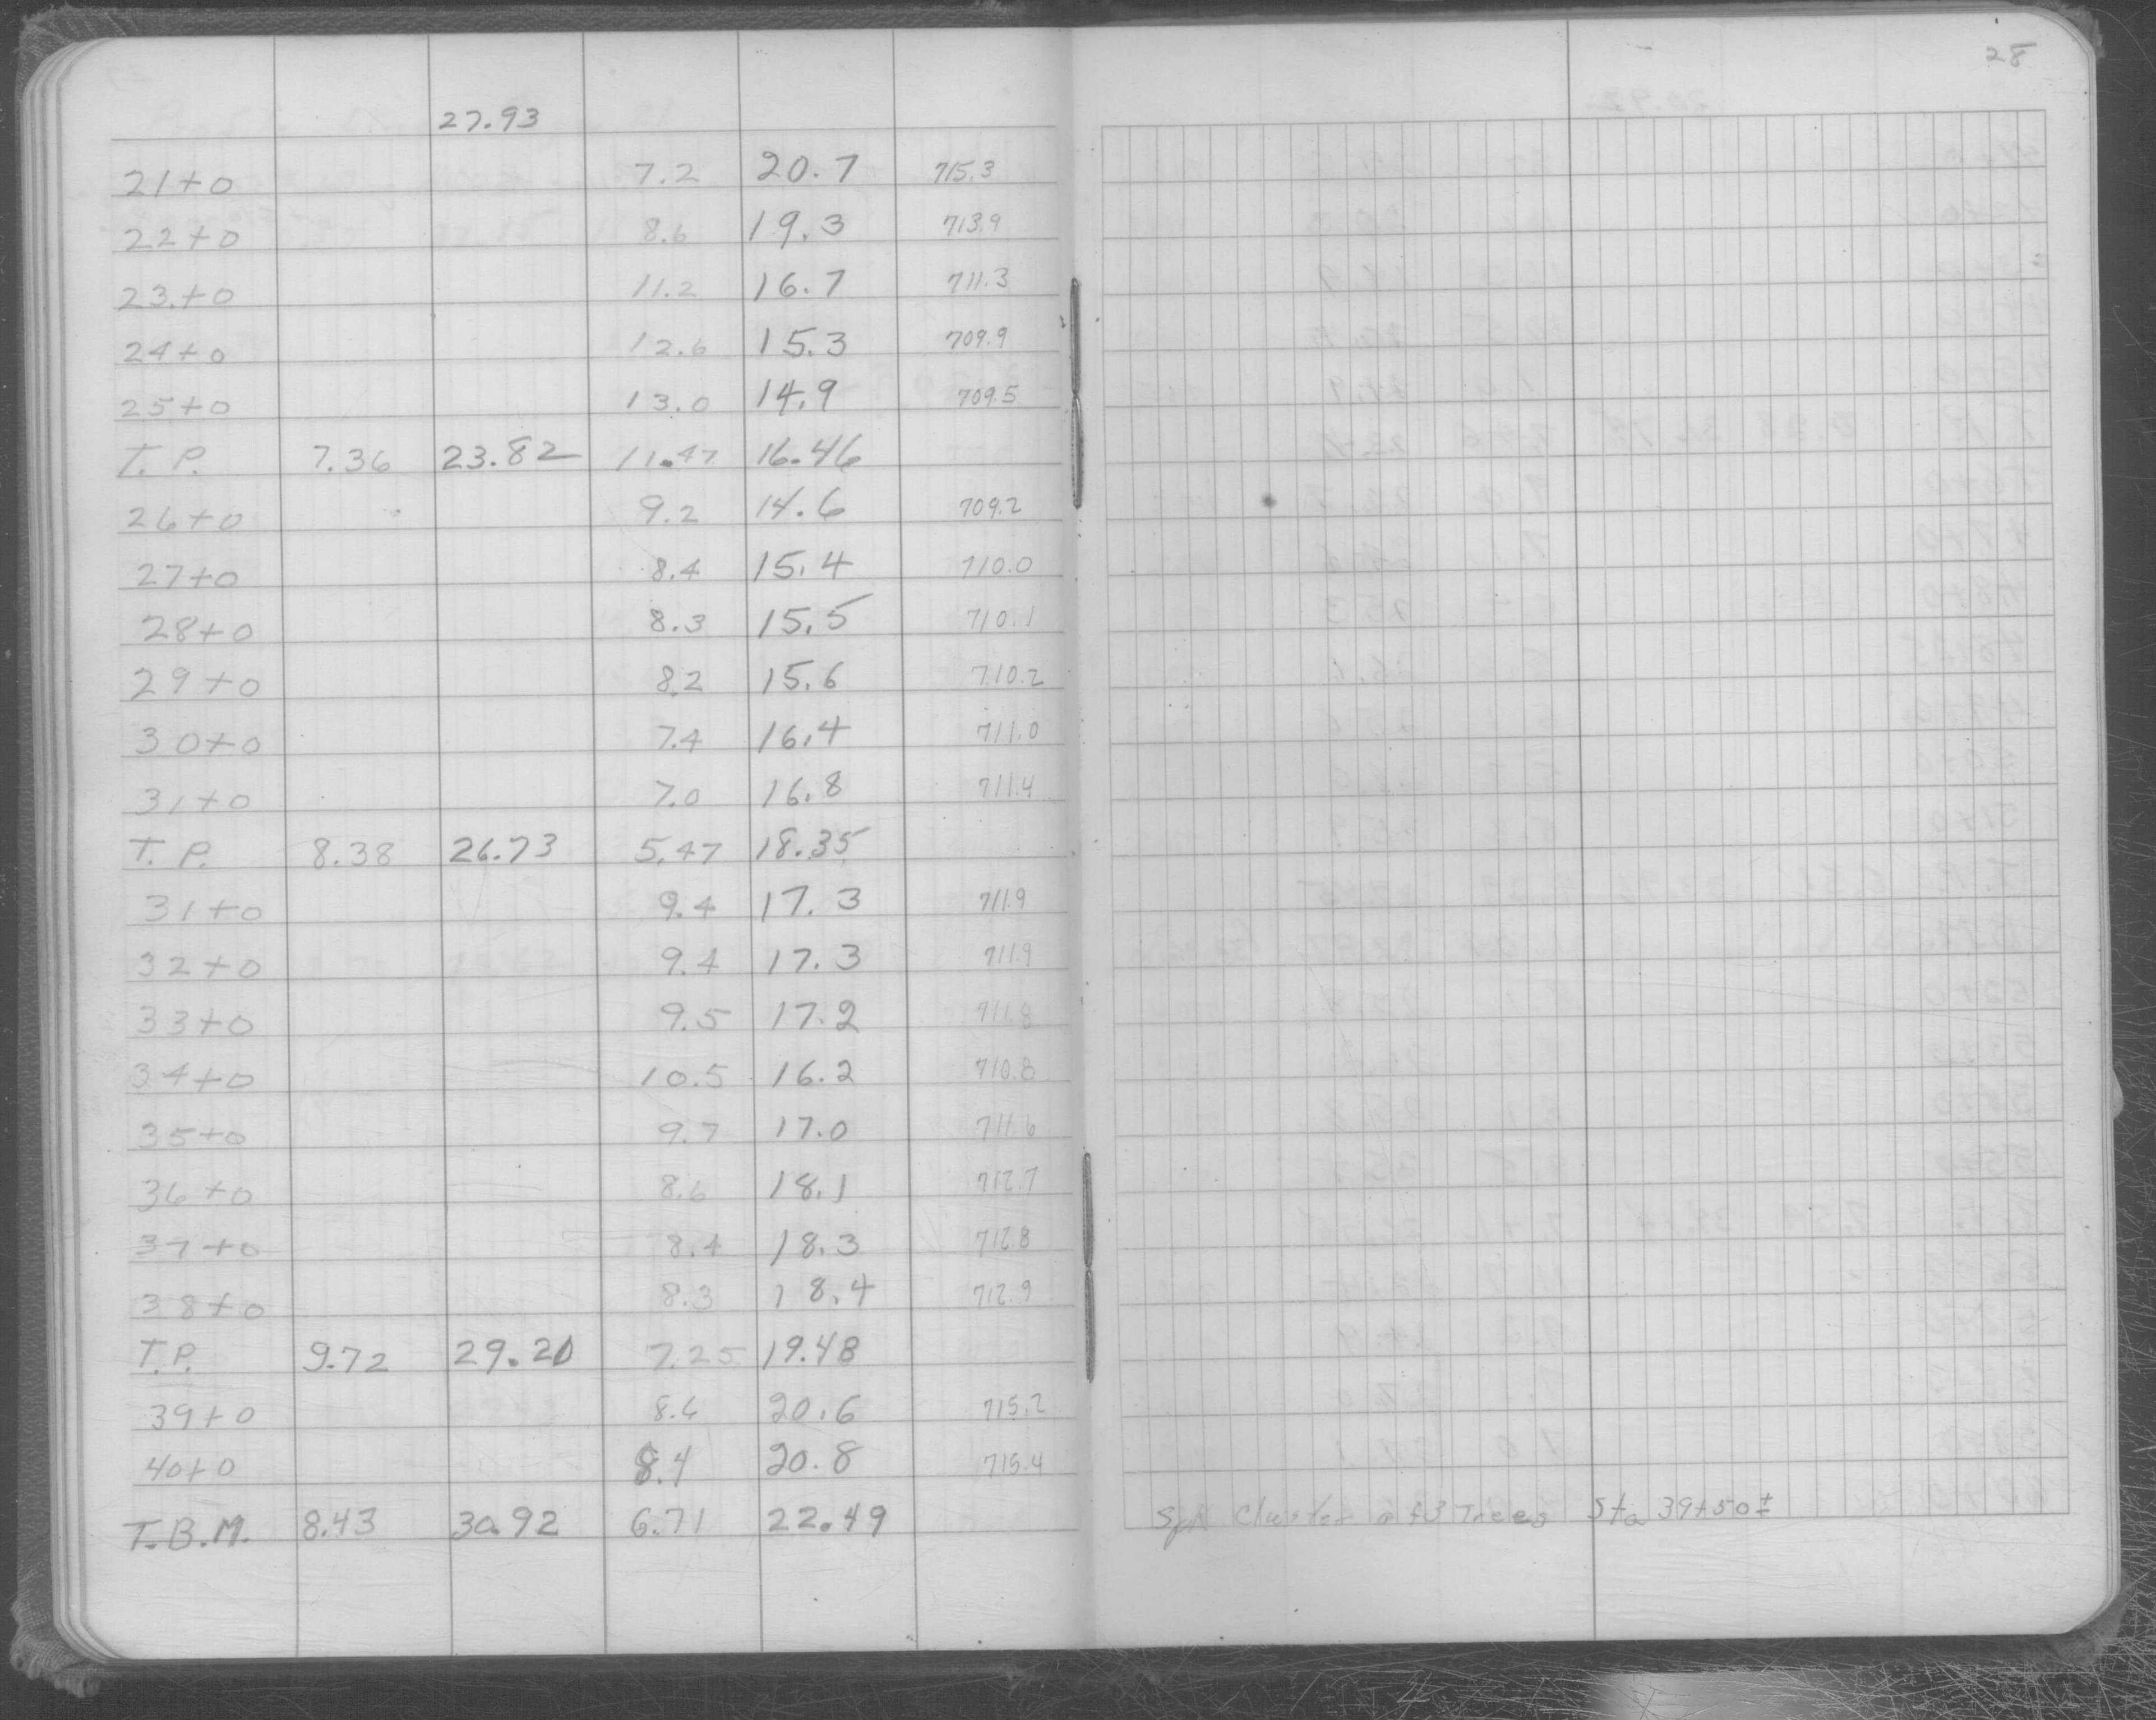 28
27.93
21+0 7.2 20.7 715.3
22+0 8.6 19.3 713.9
23+0 11.2 16.7 711.3
24+0 12.6 15.3 709.9
25+0 13.0 14.9 709.5
T. P. 7.36 23.82 11.47 16.46
26+0 9.2 14.6 709.2
27+0 8.4 15.4 710.0
28+0 8.3 15.5 710.1
29+0 8.2 15.6 710.2
30+0 7.4 16.4 711.0
31+0 7.0 16.8 711.4
T. P. 8.38 26.73 5.47 18.35
31+0 9.4 17.3 711.9
32+0 9.4 17.3 711.9
33+0 9.5 17.2 711.8
34+0 10.5 16.2 710.8
35+0 9.7 17.0 711.6
36+0 8.6 18.1 712.7
37+0 8.4 18.3 712.8
38+0 8.3 18.4 712.9
T.P. 9.72 29.20 7.25 19.48
39+0 8.6 20.6 715.2
40+0 8.4 20.8 715.4
T.B.M. 8.43 30.92 6.71 22.49 Cluster of 3 Trees Sta 39+50±